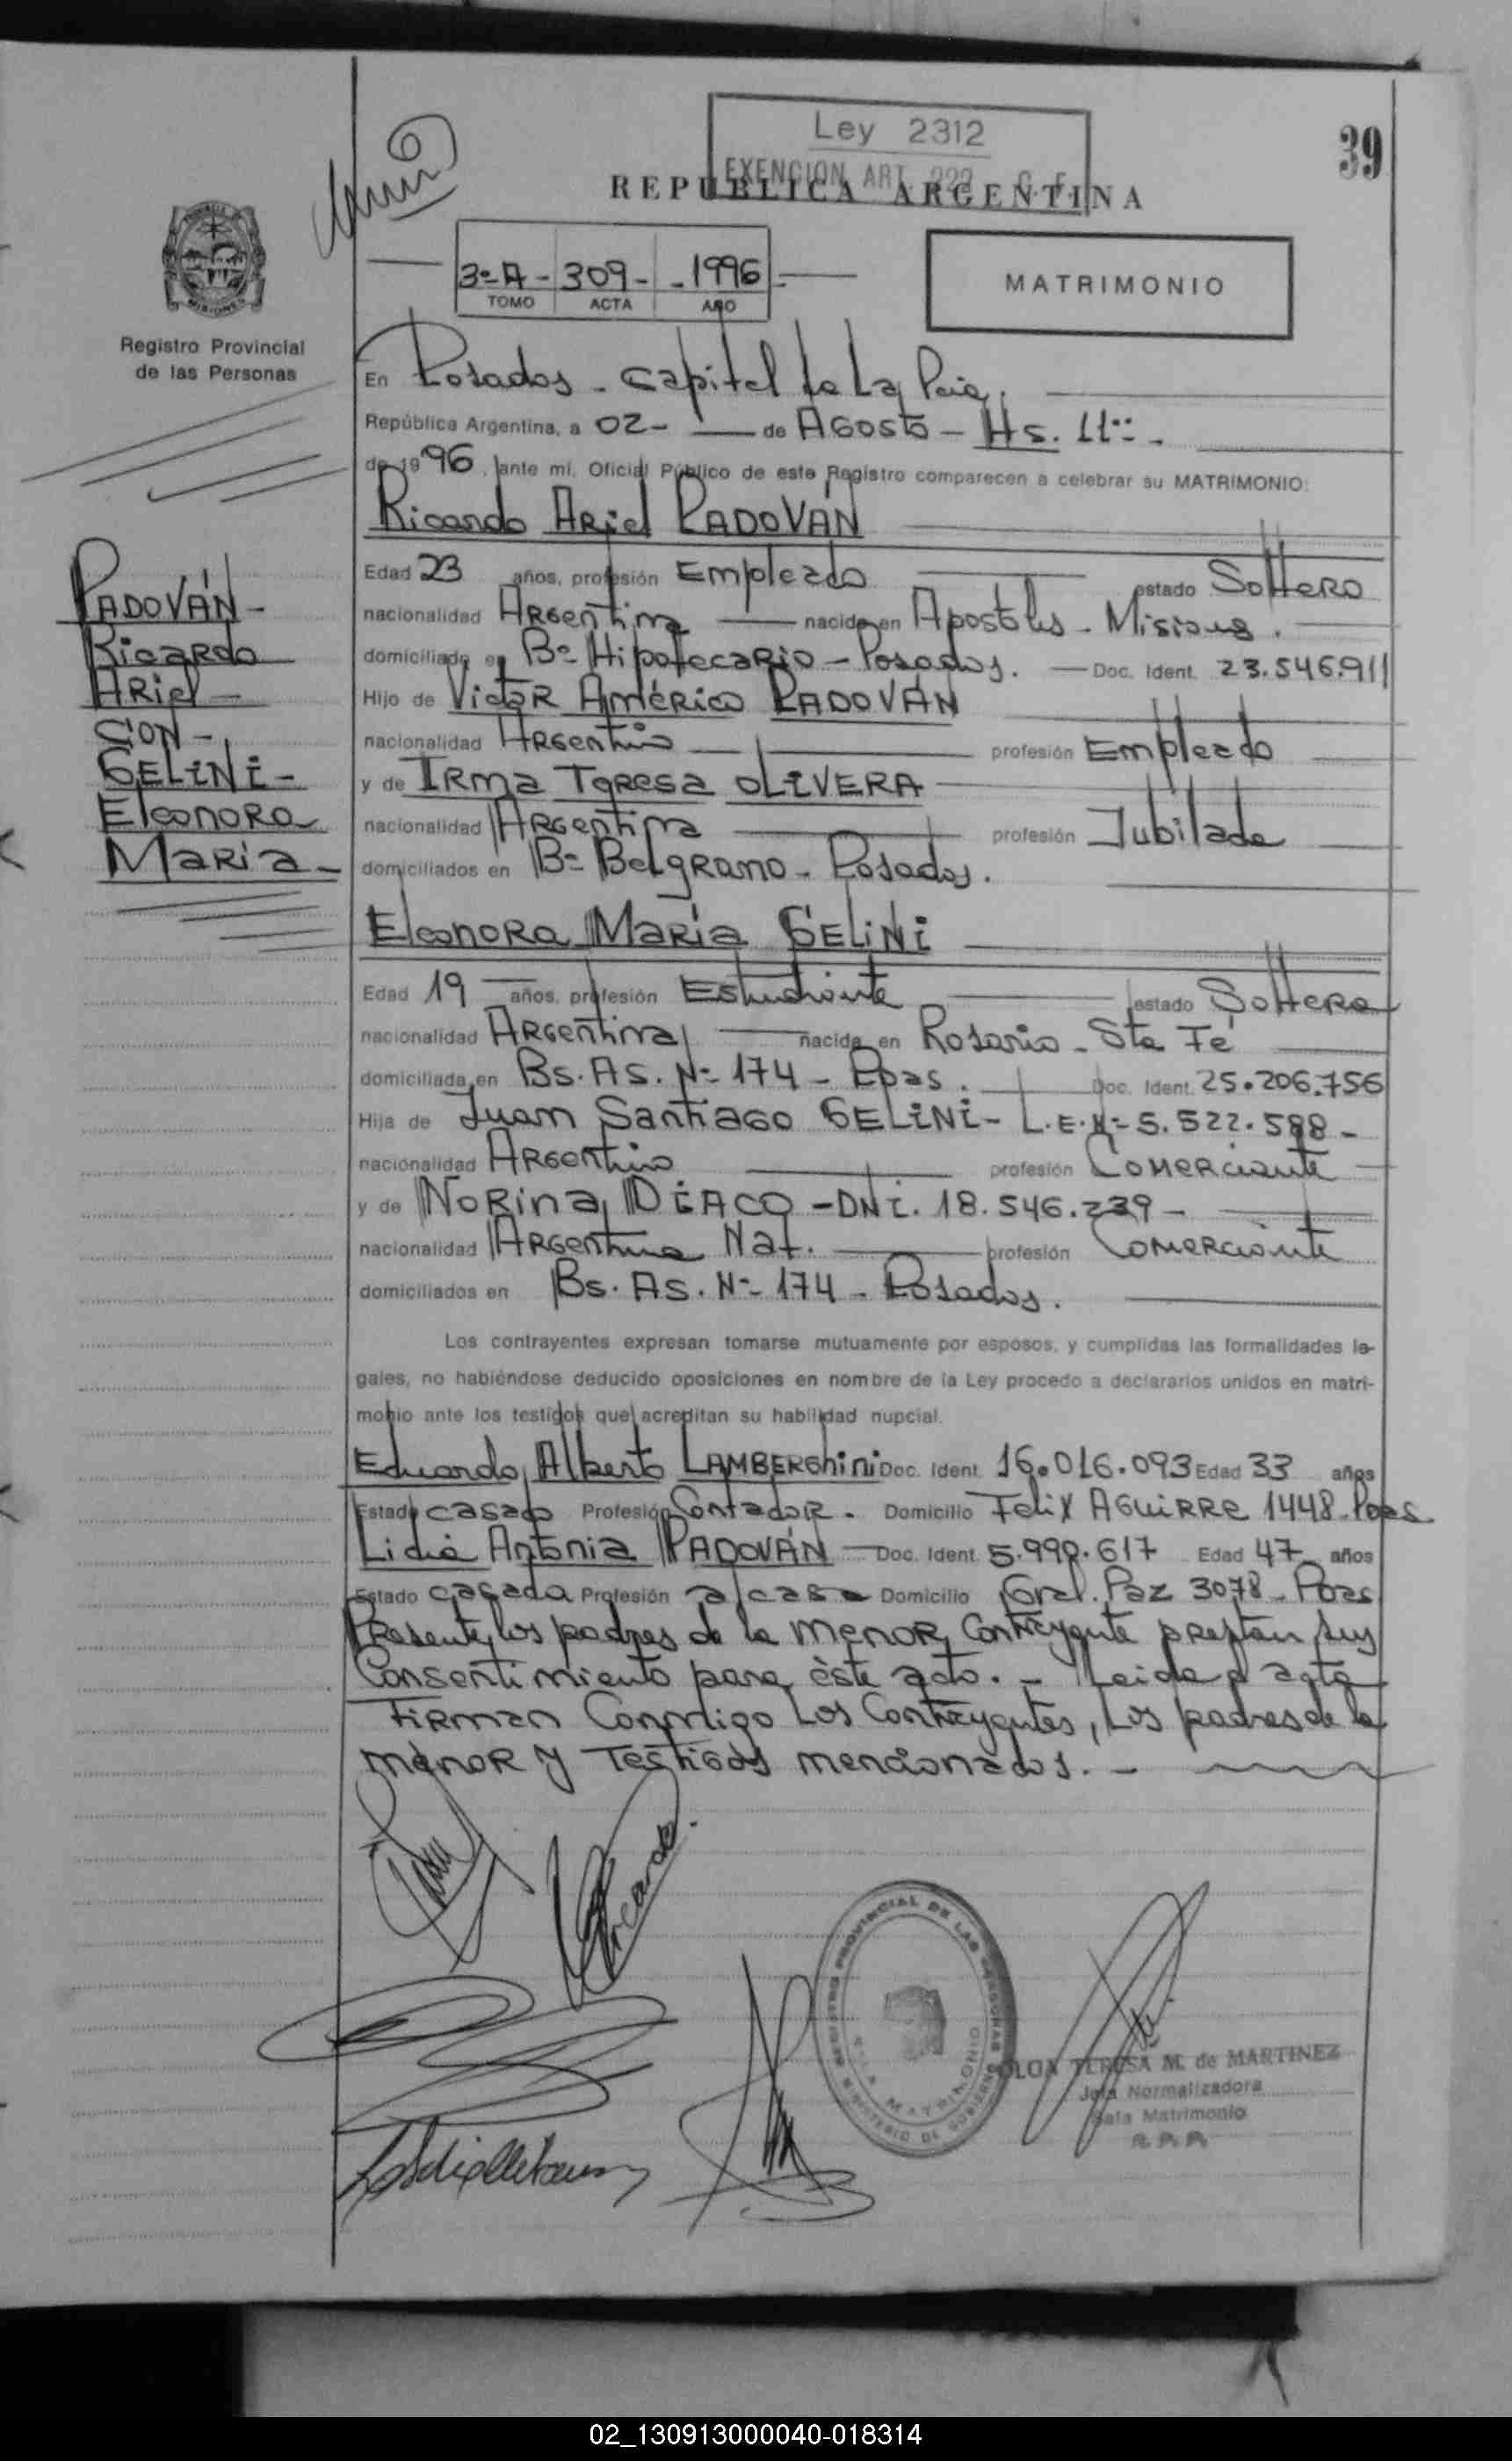 Ley 2312
EXENCION ART. 222 C.F.
39
REPUBLICA ARGENTINA
3º A - 309 - - 1996
TOMO ACTA AÑO
MATRIMONIO
Registro Provincial
de las Personas
PADOVÁN -
Ricardo
Ariel -
CON -
GELINI -
Eleonora
María -
En Posadas - Capital de La Pcia,
República Argentina, a 02 - de Agosto - Hs. 11:: -
de 19 96, ante mi, Oficial Público de este Registro comparecen a celebrar su MATRIMONIO:
Ricardo Ariel PADOVÁN
Edad 23 años, profesión Empleado estado Soltero
nacionalidad Argentina nacido en Apostoles - Misiones.
domiciliado en Bº Hipotecario - Posadas. - Doc. Ident. 23.546.911
Hijo de Victor Américo PADOVÁN
nacionalidad Argentino profesión Empleado
y de Irma Teresa OLIVERA
nacionalidad Argentina profesión Jubilada
domiciliados en Bº Belgrano - Posadas.
Eleonora María GELINI
Edad 19 años, profesión Estudiante estado Soltera
nacionalidad Argentina nacida en Rosario - Sta Fé
domiciliada en Bs. As. Nº 174 - Pdas. Doc. Ident. 25.206.756
Hija de Juan Santiago GELINI - L.E.Nº 5.522.588 -
nacionalidad Argentino profesión Comerciante
y de Norina DIACO - DNI. 18.546.239 -
nacionalidad Argentina Nat. profesión Comerciante
domiciliados en Bs. As. Nº 174 - Posadas.
Los contrayentes expresan tomarse mutuamente por esposos, y cumplidas las formalidades le-
gales, no habiéndose deducido oposiciones en nombre de la Ley procedo a declararlos unidos en matri-
monio ante los testigos que acreditan su habilidad nupcial.
Eduardo Alberto LAMBERGhini Doc. Ident. 16.016.093 Edad 33 años
Estado casado Profesión Contador. Domicilio Felix Aguirre 1448 - Pdas
Lidia Antonia PADOVÁN - Doc. Ident. 5.990.617 Edad 47 años
Estado casada Profesión a/casa Domicilio Gral. Paz 3078 - Pdas
Presente los padres de la menor contrayente prestan sus
Consentimiento para éste acto. - Leida el acta
Firman Conmigo Los Contrayentes, Los padres de la
menor y Testigos mencionados. -
Ricardo
REGISTRO PROVINCIAL DE LAS PERSONAS
MINISTERIO DE GOBIERNO
SALA MATRIMONIO
OLGA TERESA M. de MARTINEZ
Jefa Normalizadora
Sala Matrimonio
R. P. P.
02_130913000040-018314